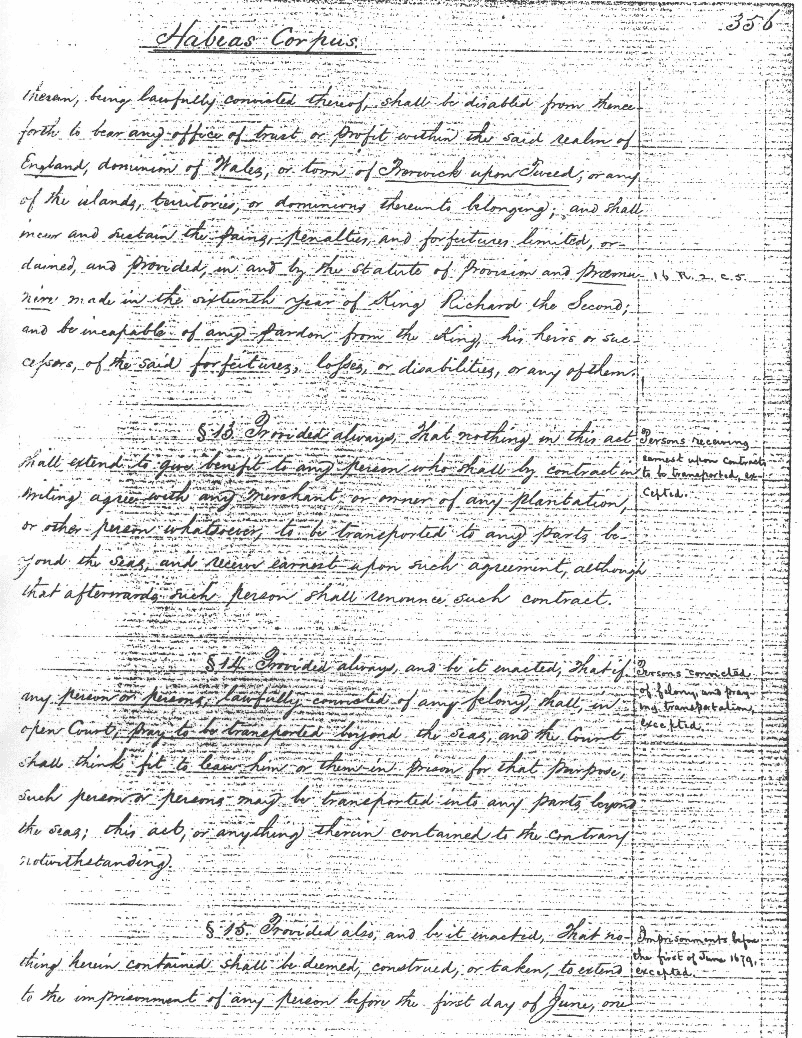 356
Habeas Corpus.
therein, being lawfully convicted thereof, shall be disabled from thence-
forth to bear any office of trust or profit within the said realm of
England, dominion of Wales, or town of Berwick upon Tweed, or any
of the islands, territories, or dominions thereunto belonging; and shall
incur and sustain the pains, penalties, and forfeitures limited, or-
dained, and Provided, in and by the statute of Provision and Præmu-
nire made in the sixteenth year of King Richard the Second;
and be incapable of any pardon from the King, his heirs or suc-
cessors, of the said forfeitures, losses, or disabilities, or any of them.
16 R. 2. c. 5.
§ 13. Provided always, That nothing in this act
shall extend to give benefit to any person who shall by contract in
writing agree with any merchant or owner of any plantation,
or other person whatsoever, to be transported to any parts be-
yond the seas, and receive earnest upon such agreement, although
that afterwards such person shall renounce such contract.
Persons receiving
earnest upon contracts
to be transported, ex-
cepted.
§ 14. Provided always, and be it enacted, That if
any person or persons, lawfully convicted of any felony, shall, in
open Court, pray to be transported beyond the seas, and the Court
shall think fit to leave him or them in prison for that purpose,
such person or persons may be transported into any parts beyond
the seas; this act, or anything therein contained to the contrary
notwithstanding.
Persons convicted
of felony, and pray-
ing transportation,
excepted.
§ 15. Provided also, and be it enacted, That no-
thing herein contained shall be deemed, construed, or taken, to extend
to the imprisonment of any person before the first day of June, one
Imprisonments before
the first of June 1679,
excepted.